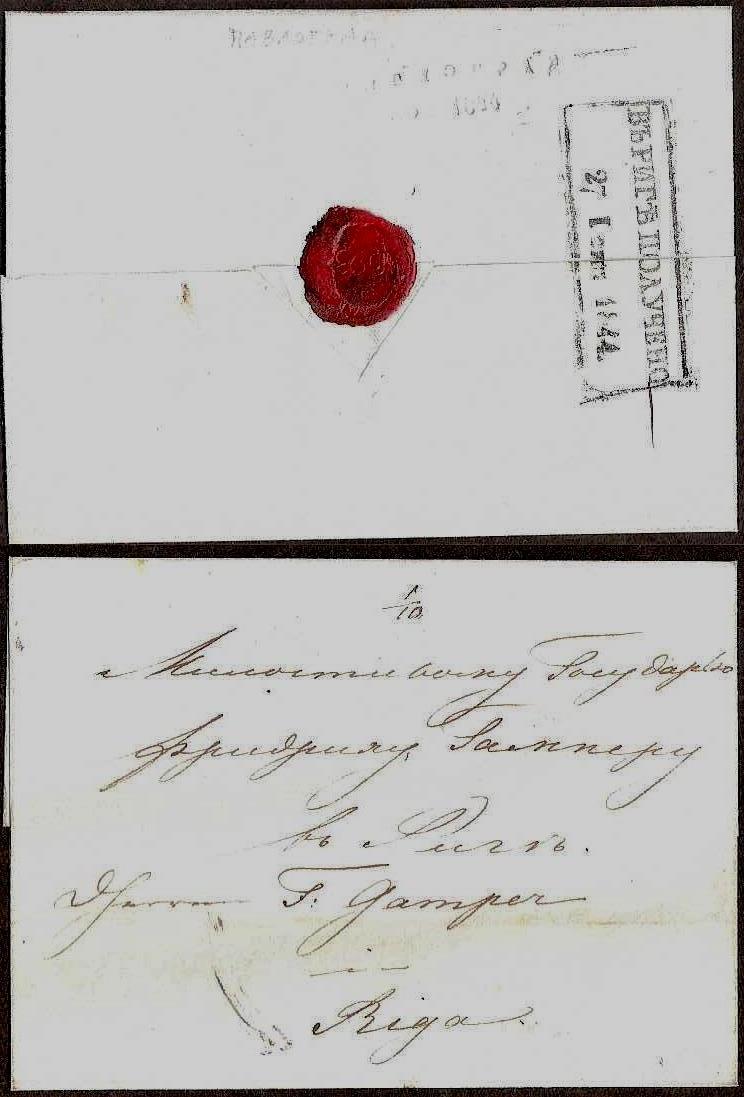 ВЪ РИГѢ ПОЛУЧЕНО
27 1844
1/10
Милостивому Государю
Фридриху Гамперу
въ Ригѣ.
Herrn F: Gamper
in
Riga.